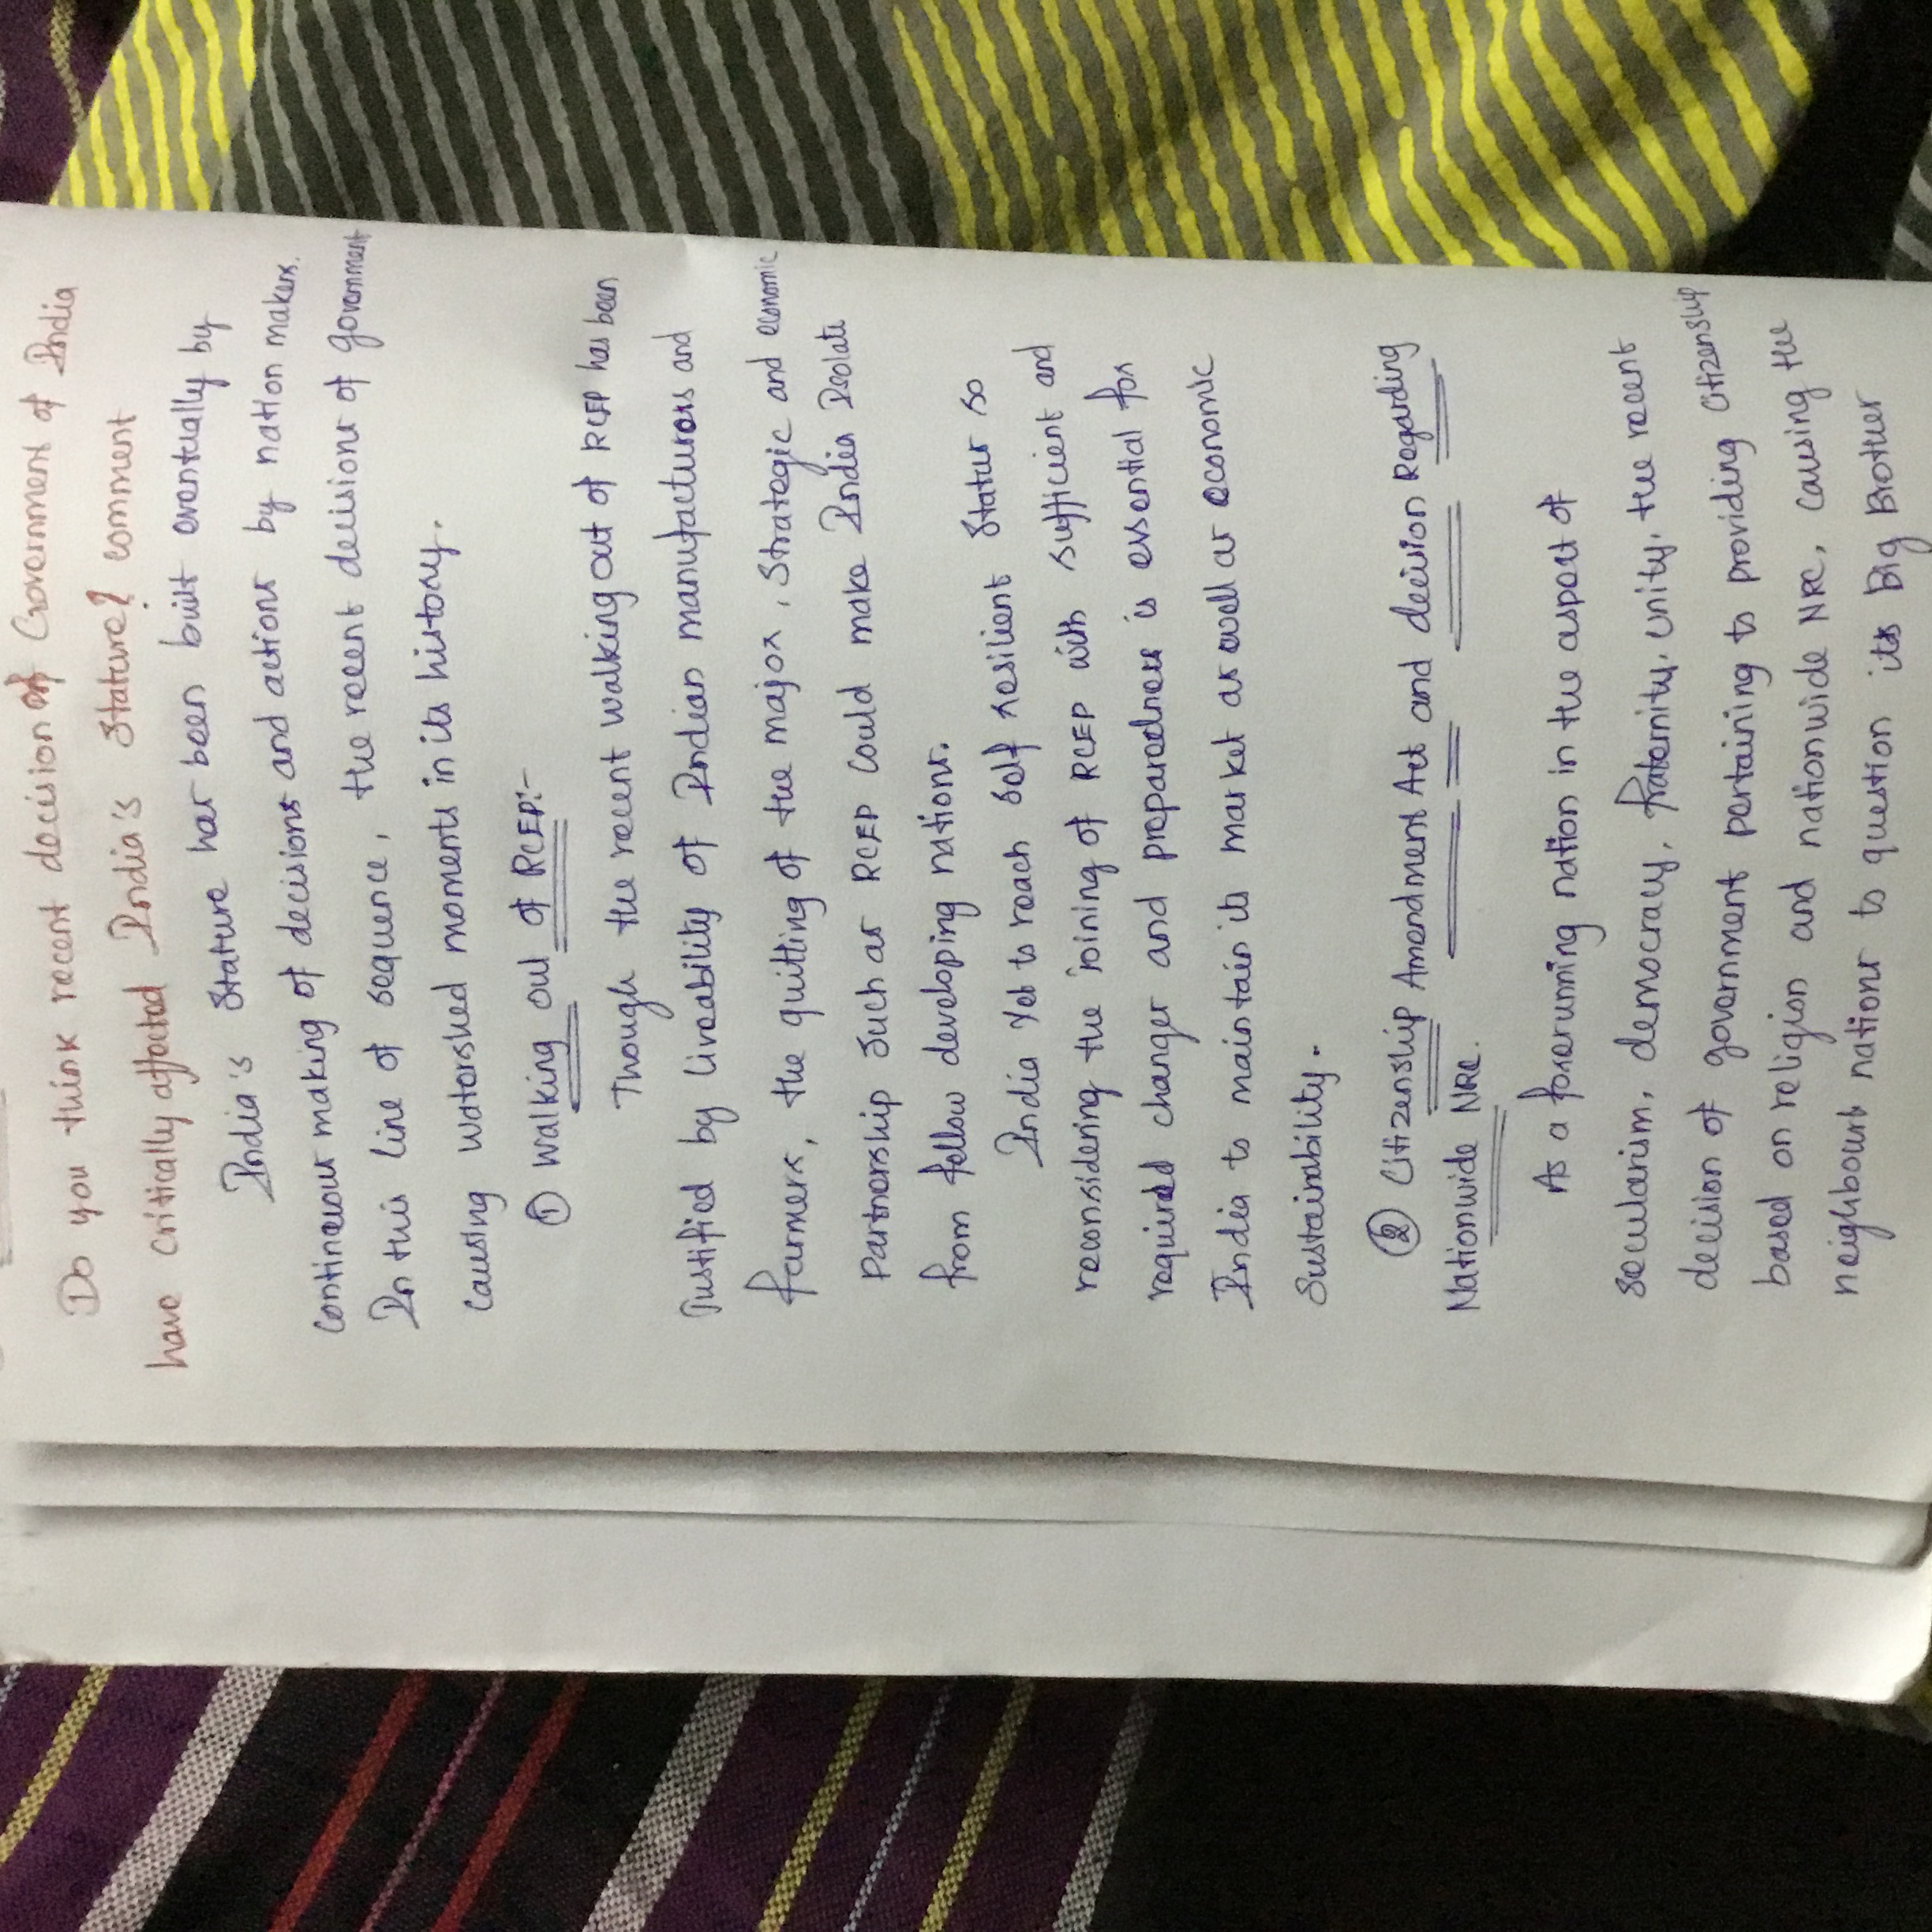 Do you think recent decision of Government of India
have critically affected India's stature? comment
India's stature has been built eventually by
continuous making of decisions and actions by nation makers.
In this line of sequence, the recent decisions of government
causing watershed moments in its history.
① Walking out of RCEP:-
Though the recent walking out of RCEP has been
Justified by liveability of Indian manufacturers and
farmers, the quitting of the major, strategic and economic
Partnership such as RCEP could make India Isolate
from fellow developing nations.
India yet to reach self resilient status so
reconsidering the joining of RCEP with sufficient and
required changes and preparedness is essential for
India to maintain its market as well as economic
Sustainability.
② Citizenship Amendment Act and decision Regarding
Nationwide NRC.
As a forerunning nation in the aspect of
secularism, democracy, fraternity, unity, the recent
decision of government pertaining to providing citizenship
based on religion and nationwide NRC, causing the
neighbours nations to question its Big Brother